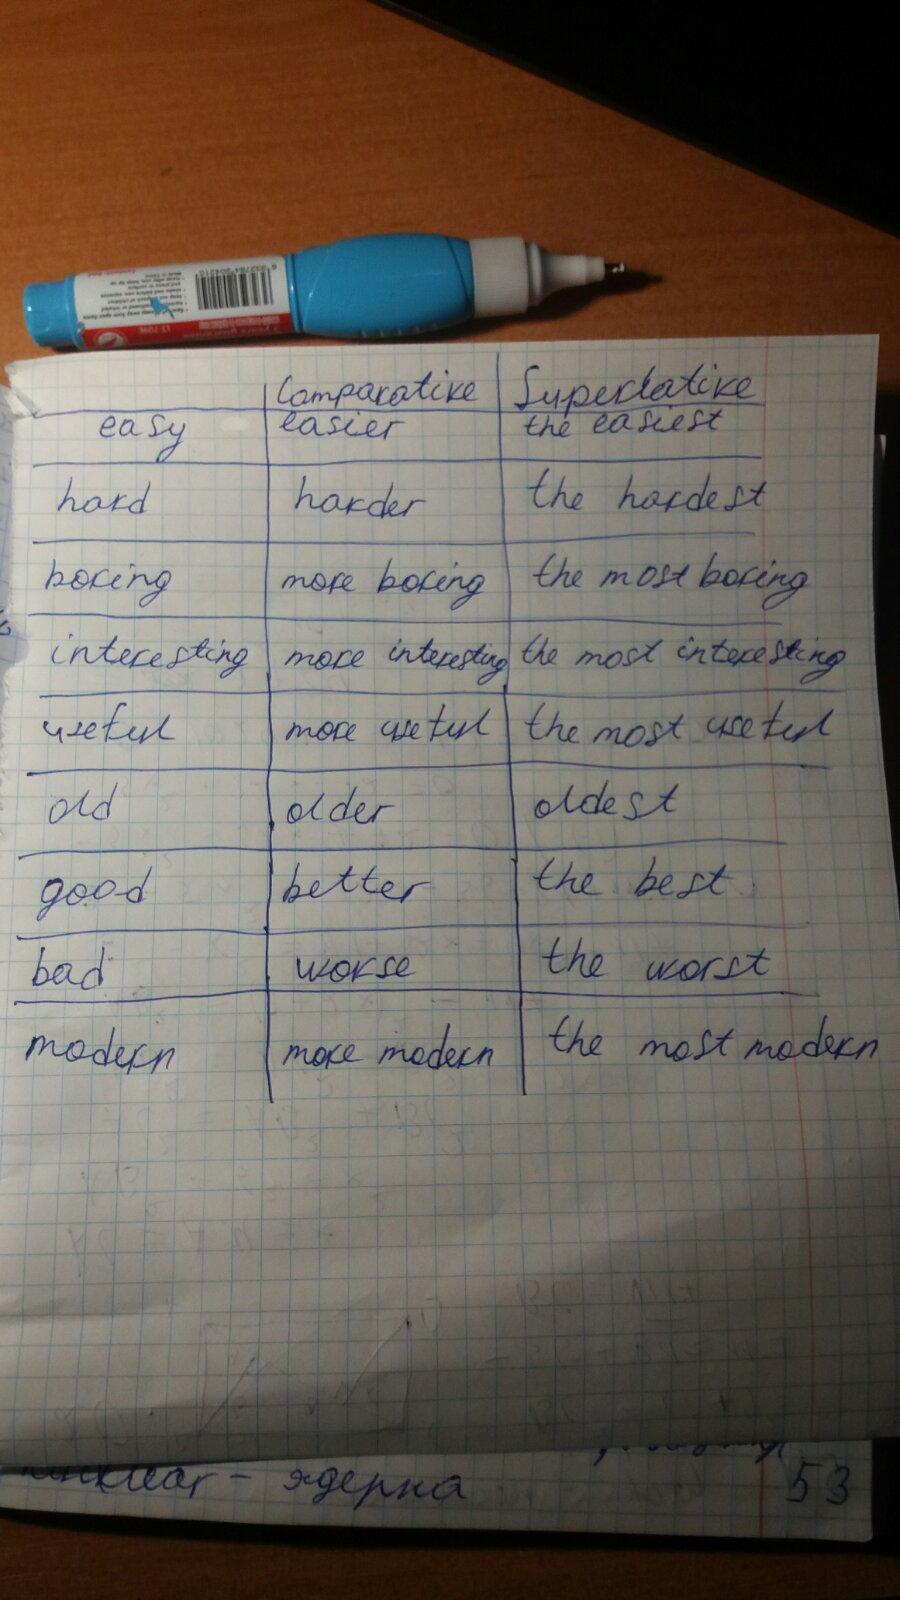 6932784 304210
LT-709E
Comparative Superlative
easy easier the easiest
hard harder the hardest
boring more boring the most boring
interesting more interesting the most interesting
useful more useful the most useful
old older oldest
good better the best
bad worse the worst
modern more modern the most modern
ядерна
53